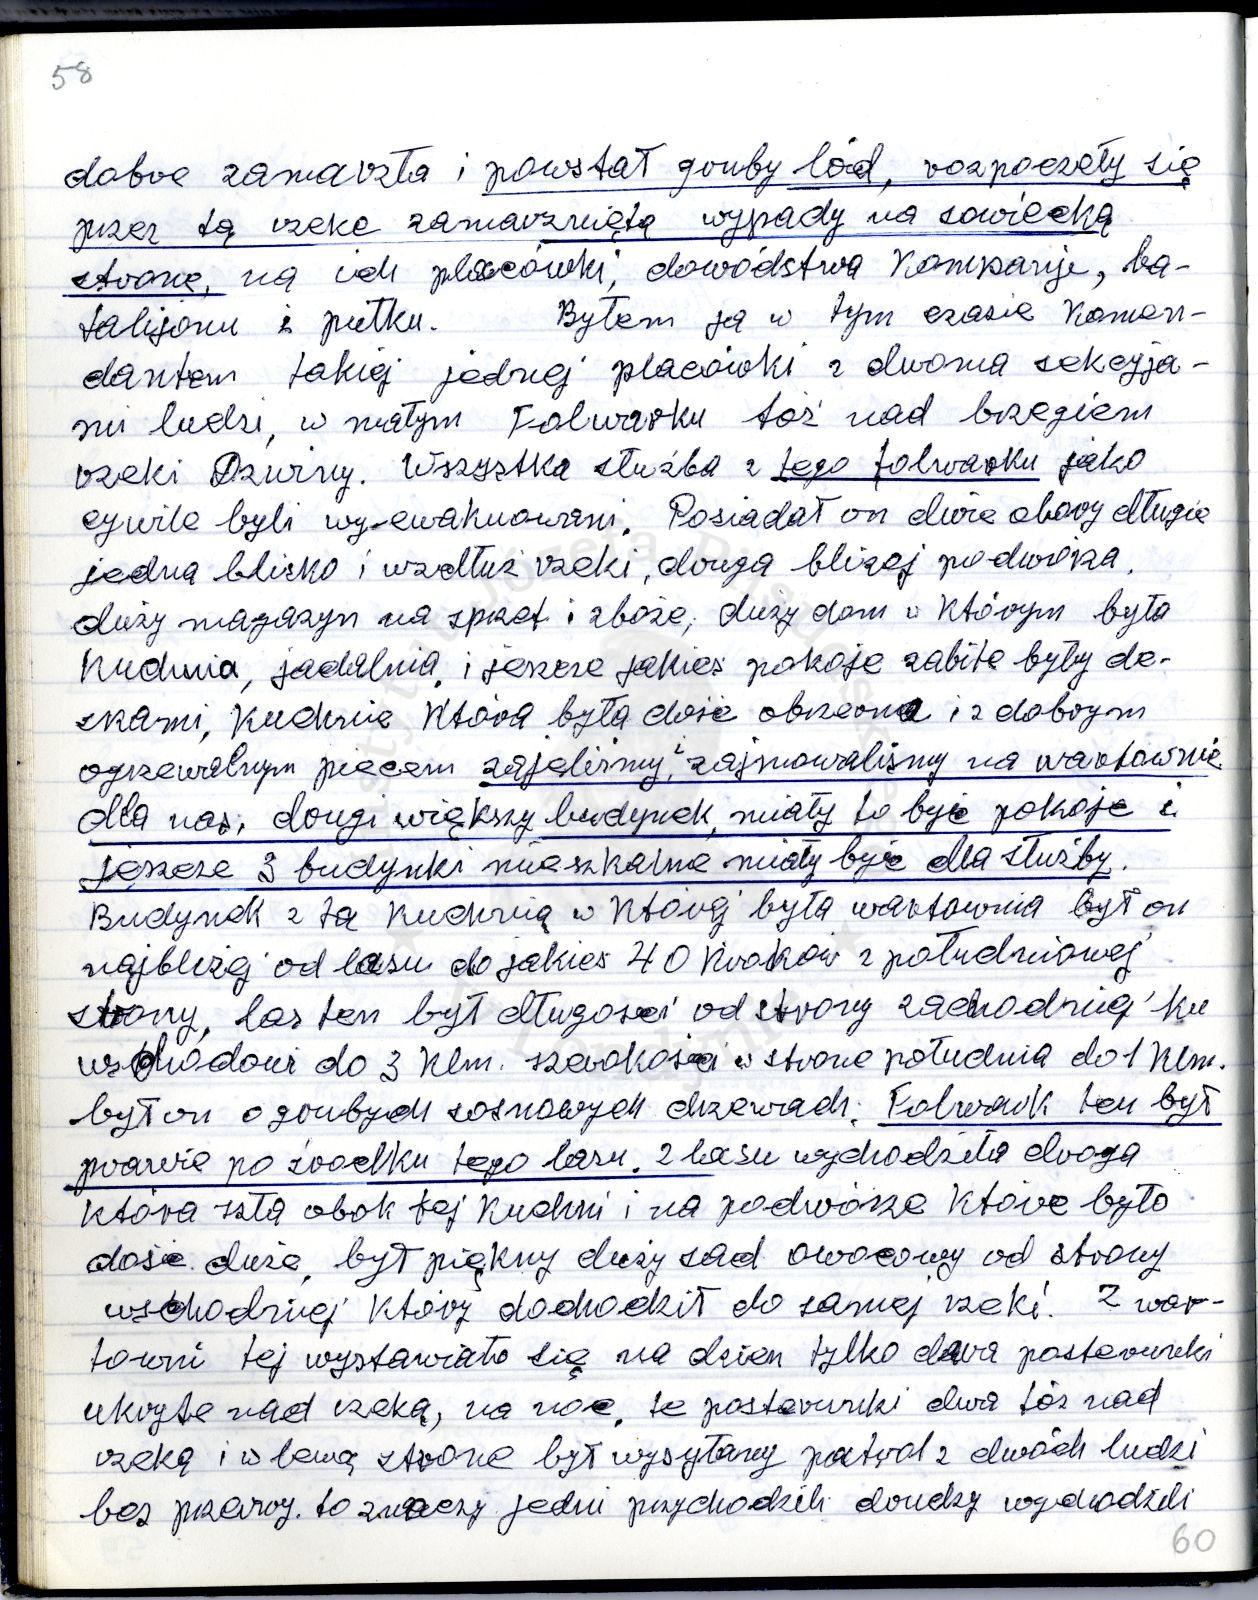 58
dobre zamarzła i powstał gruby lód, rozpoczeły się
przez tą rzekę zamarzniętą wypady na sowiecką
stronę, na ich placówki, dowództwa Kompanije, ba-
talijonu i pułku. Byłem ja w tym czasie Komen-
dantem takiej jednej placówki z dwoma sekcyja-
mi ludzi, w małym Folwarku tóż nad brzegiem
rzeki Dzwiny. Wszystka służba z tego folwarku jako
cywile byli wy-ewakuowani. Posiadał on dwie obory długie
jedna blisko i wzdłuż rzeki, druga bliżej podwórza,
duży magazyn na sprzęt i zboże, duży dom w Którym była
Kuchnia, jadalnia, i jeszcze jakies pokoje zabite były de-
skami, Kuchnie Która była dość obszerna i z dobrym
ogrzewalnym piecem zajeliśmy, i zajmowaliśmy na wartownie
dla nas, drugi większy budynek, miały to być pokoje i
jeszcze 3 budynki mieszkalne miały być dla służby.
Budynek z tą Kuchnią w Której była wartownia był on
najbliżej od lasu do jakies 40 Kroków z południowej
strony, las ten był długości od strony zachodniej ku
wschodowi do 3 Klm. szerokości w strone południa do 1 Klm.
był on o grubych sosnowych drzewach. Folwark ten był
prawie po środku tego lasu. Z lasu wychodziła droga
Która szła obok tej Kuchni i na podwórze Które było
dość duże, był piękny duży sad owocowy od strony
wschodniej Który dochodził do samej rzeki. Z war-
towni tej wystawiało się na dzien tylko dwa posterunki
ukryte nad rzeką, na noc, te posterunki dwa tóż nad
rzeką i w lewą strone był wysyłany patrol z dwóch ludzi
bez przerwy. to znaczy jedni przychodzili drudzy wychodzili
60
Instytut Józefa Piłsudskiego
Londyn